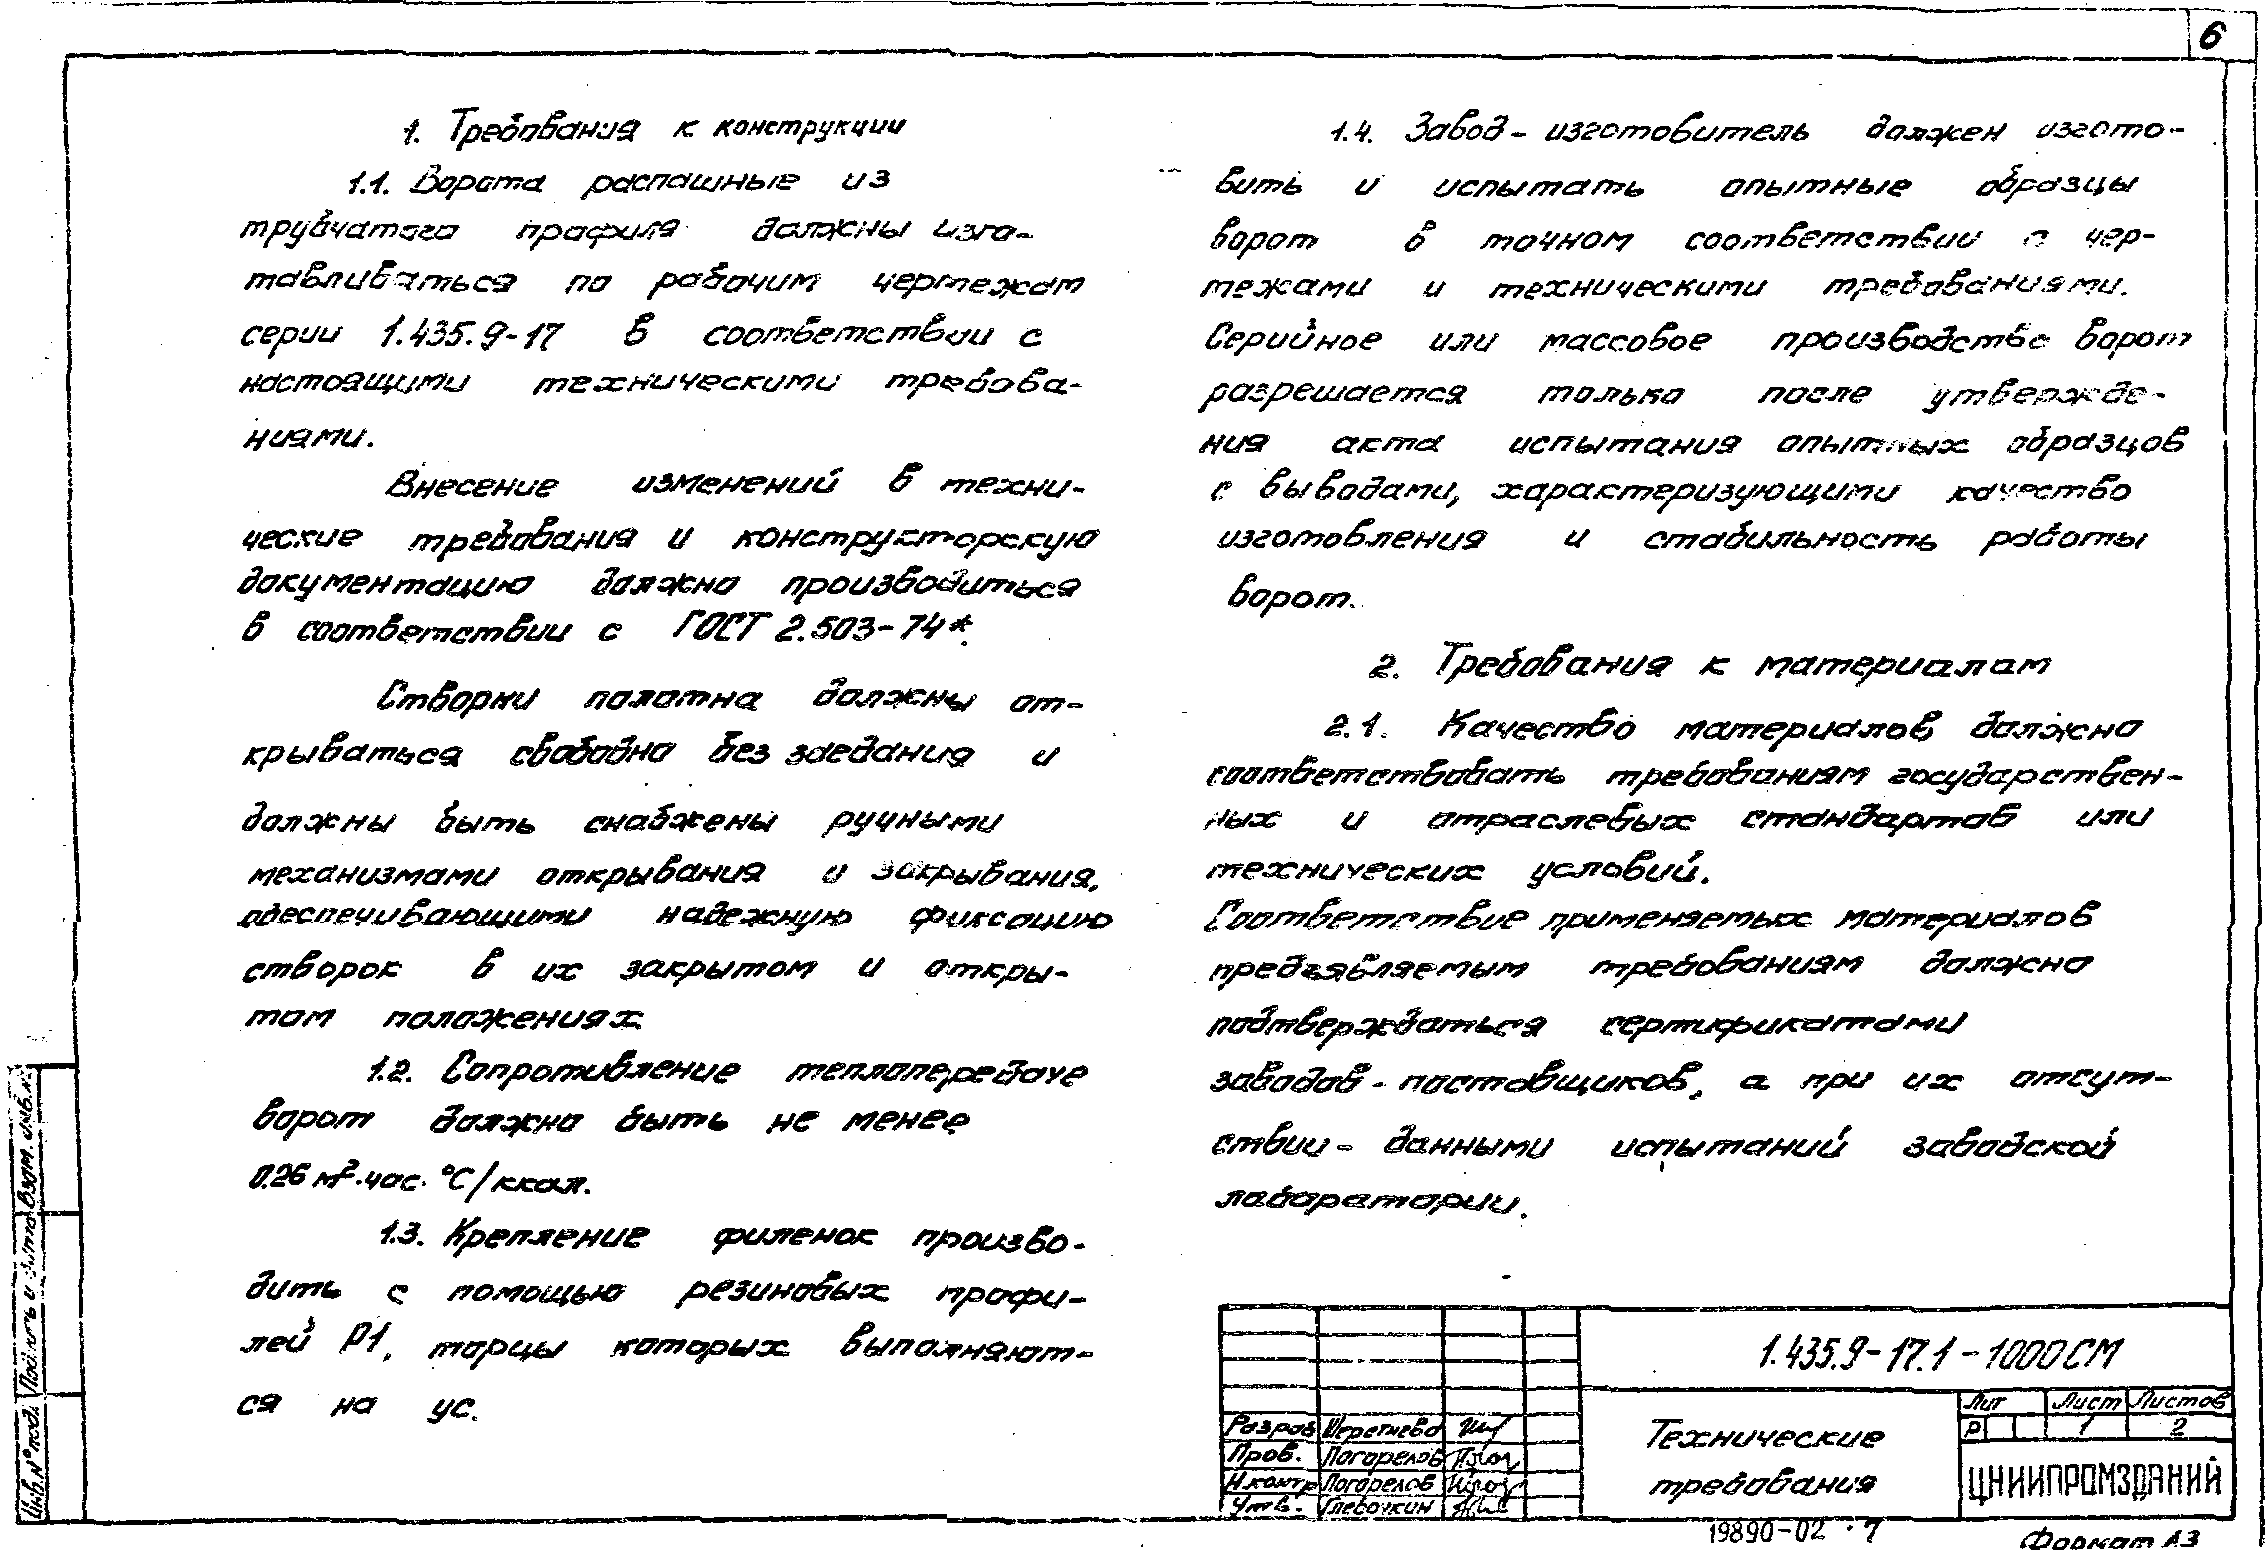 6
1. Требования к конструкции
1.1. Ворота распашные из
трубчатого профиля должны изго-
тавливаться по рабочим чертежам
серии 1.435.9-17 в соответствии с
настоящими техническими требова-
ниями.
Внесение изменений в техни-
ческие требования и конструкторскую
документацию должно производиться
в соответствии с ГОСТ 2.503-74*.
Створки полотна должны от-
крываться свободно без заедания и
должны быть снабжены ручными
механизмами открывания и закрывания,
обеспечивающими надежную фиксацию
створок в их закрытом и откры-
том положениях
1.2. Сопротивление теплопередаче
ворот должно быть не менее
0.26 м²·час·°С/ккал.
1.3. Крепление филенок произво-
дить с помощью резиновых профи-
лей Р1, торцы которых выполняют-
ся на ус.
1.4. Завод-изготовитель должен изгото-
вить и испытать опытные образцы
ворот в точном соответствии с чер-
тежами и техническими требованиями.
Серийное или массовое производство ворот
разрешается только после утвержде-
ния акта испытания опытных образцов
с выводами, характеризующими качество
изготовления и стабильность работы
ворот.
2. Требования к материалам
2.1. Качество материалов должно
соответствовать требованиям государствен-
ных и отраслевых стандартов или
технических условий.
Соответствие применяемых материалов
предъявляемым требованиям должно
подтверждаться сертификатами
заводов-поставщиков, а при их отсут-
ствии - данными испытаний заводской
лаборатории.
1.435.9-17.1-1000СМ
Технические
требования
Лит Лист Листов
Р 1 2
ЦНИИПРОМЗДАНИЙ
Разраб
Пров. Погорелов
Н.контр Погорелов
Утв.
19890-02 7
Формат А3
Инв.№ под.
Подпись и дата
Взам. инв.н.